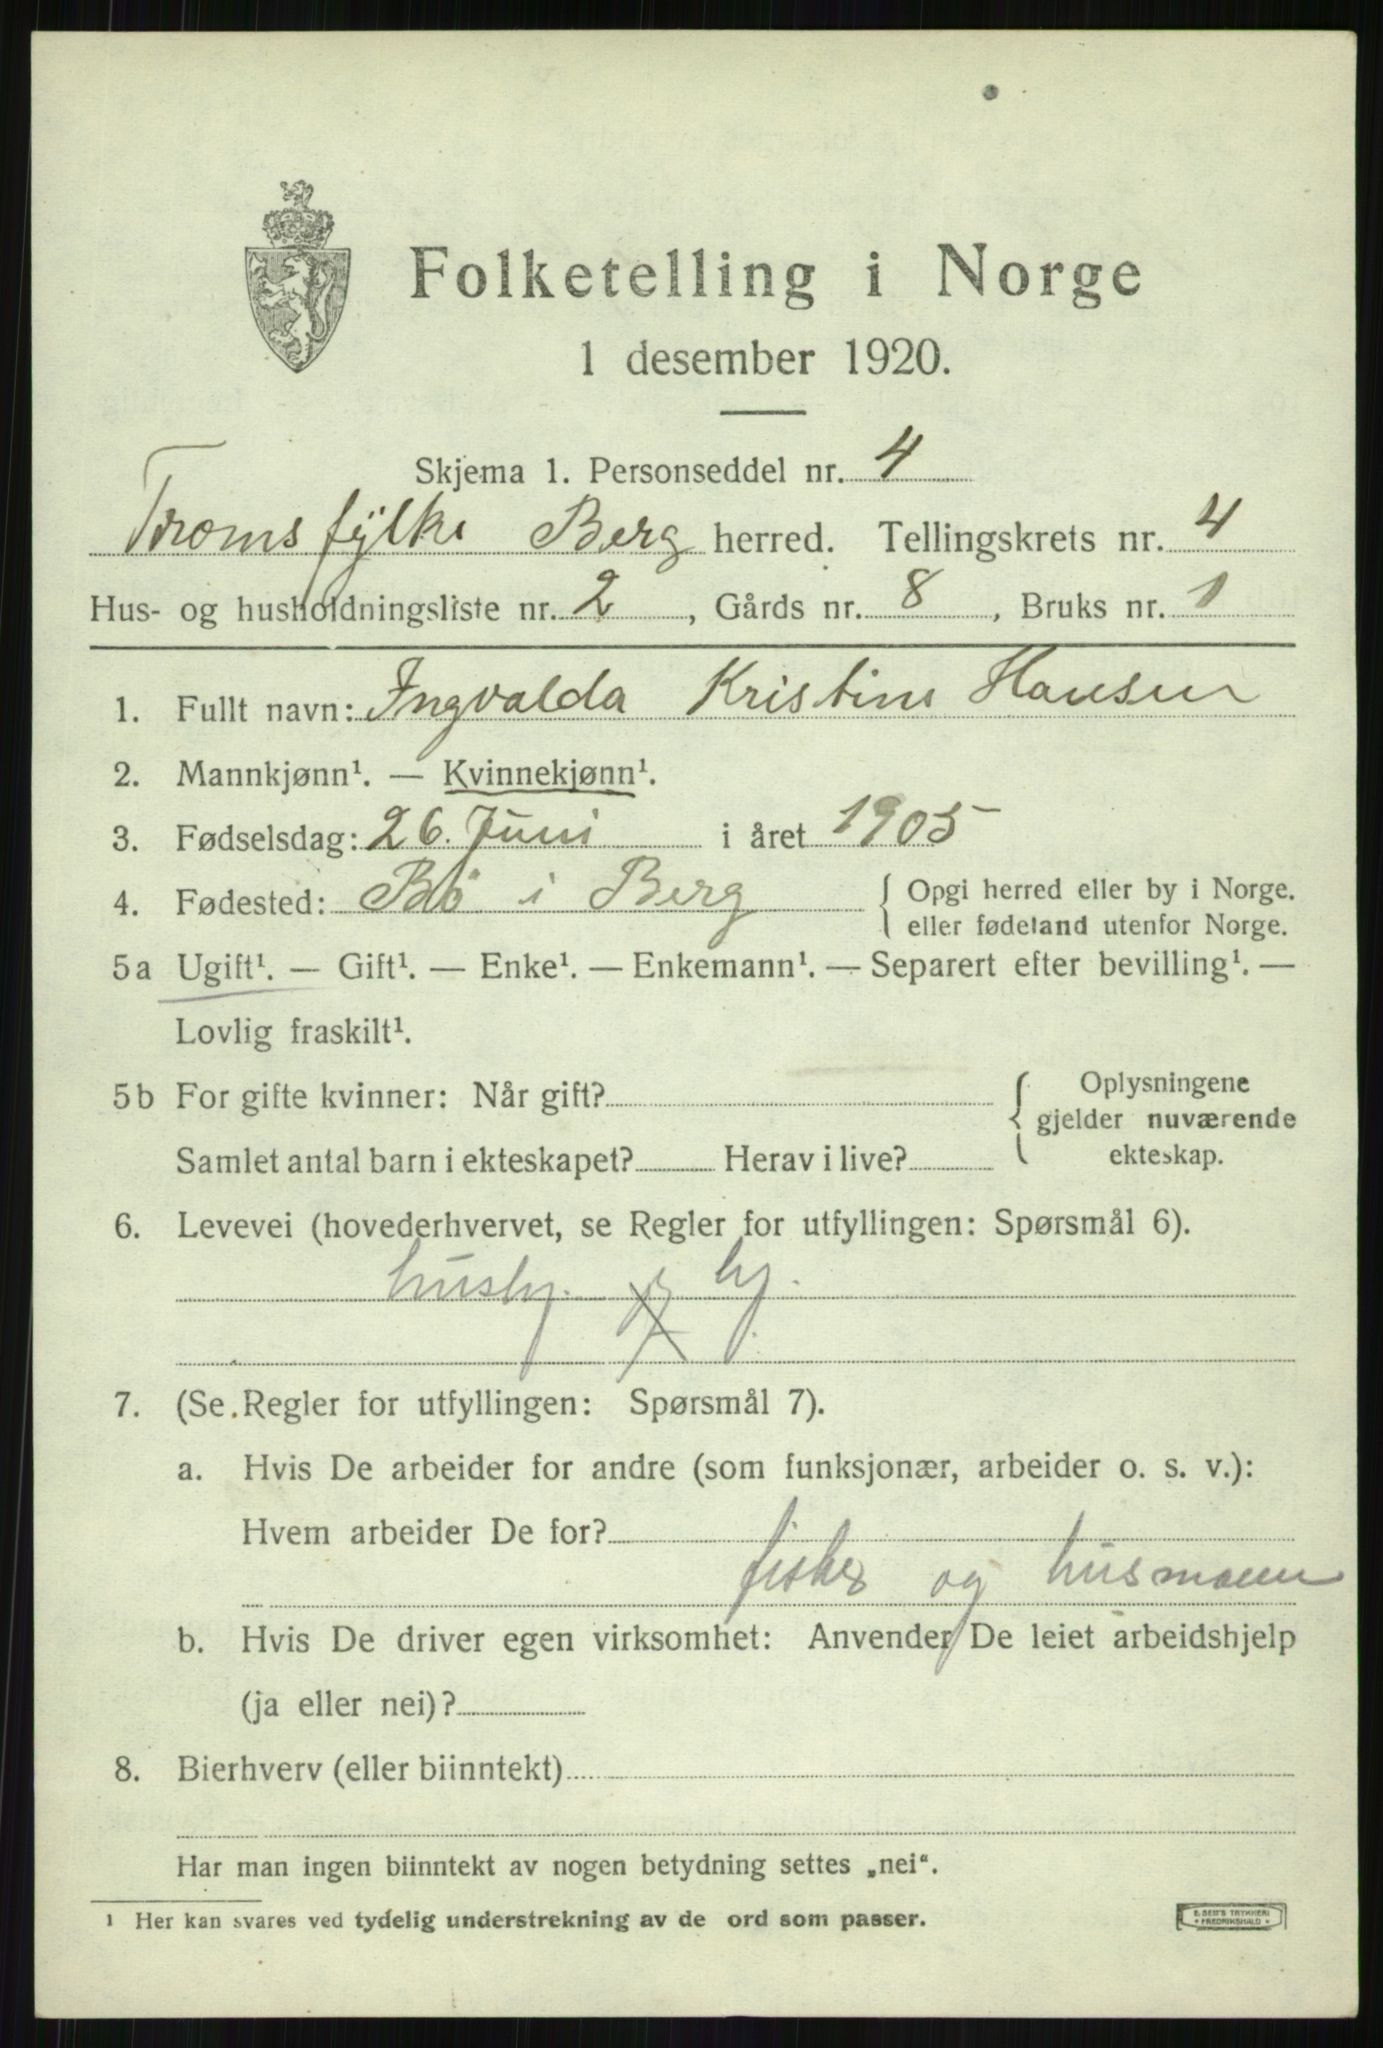 Folketelling i Norge
1 desember 1920.
Skjema 1. Personseddel nr. 4
Troms fylke Berg herred. Tellingskrets nr. 4
Hus- og husholdningsliste nr. 2, Gårds nr. 8, Bruks nr. 1
1. Fullt navn: Ingvalda Kristine Hansen
2. Mannkjønn¹. — Kvinnekjønn¹.
3. Fødselsdag: 26. Juni i året 1905
4. Fødested: Bö i Berg { Opgi herred eller by i Norge.
eller fødeland utenfor Norge.
5a Ugift¹. — Gift¹. — Enke¹. — Enkemann¹. — Separert efter bevilling¹. —
Lovlig fraskilt¹.
5b For gifte kvinner: Når gift? { Oplysningene
gjelder nuværende
Samlet antal barn i ekteskapet? Herav i live? ekteskap.
6. Levevei (hovederhvervet, se Regler for utfyllingen: Spørsmål 6).
hj.
7. (Se Regler for utfyllingen: Spørsmål 7).
a. Hvis De arbeider for andre (som funksjonær, arbeider o. s. v.):
Hvem arbeider De for?
fisker og husmann
b. Hvis De driver egen virksomhet: Anvender De leiet arbeidshjelp
(ja eller nei)?
8. Bierhverv (eller biinntekt)
Har man ingen biinntekt av nogen betydning settes „nei“.
1 Her kan svares ved tydelig understrekning av de ord som passer.
E. SEM'S TRYKKERI
• FREDRIKSHALD •